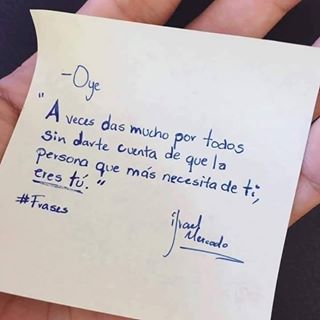 -Oye
"A veces das mucho por todos
sin darte cuenta de que la
persona que más necesita de ti,
eres tú."
#Frases
israel
Mercado